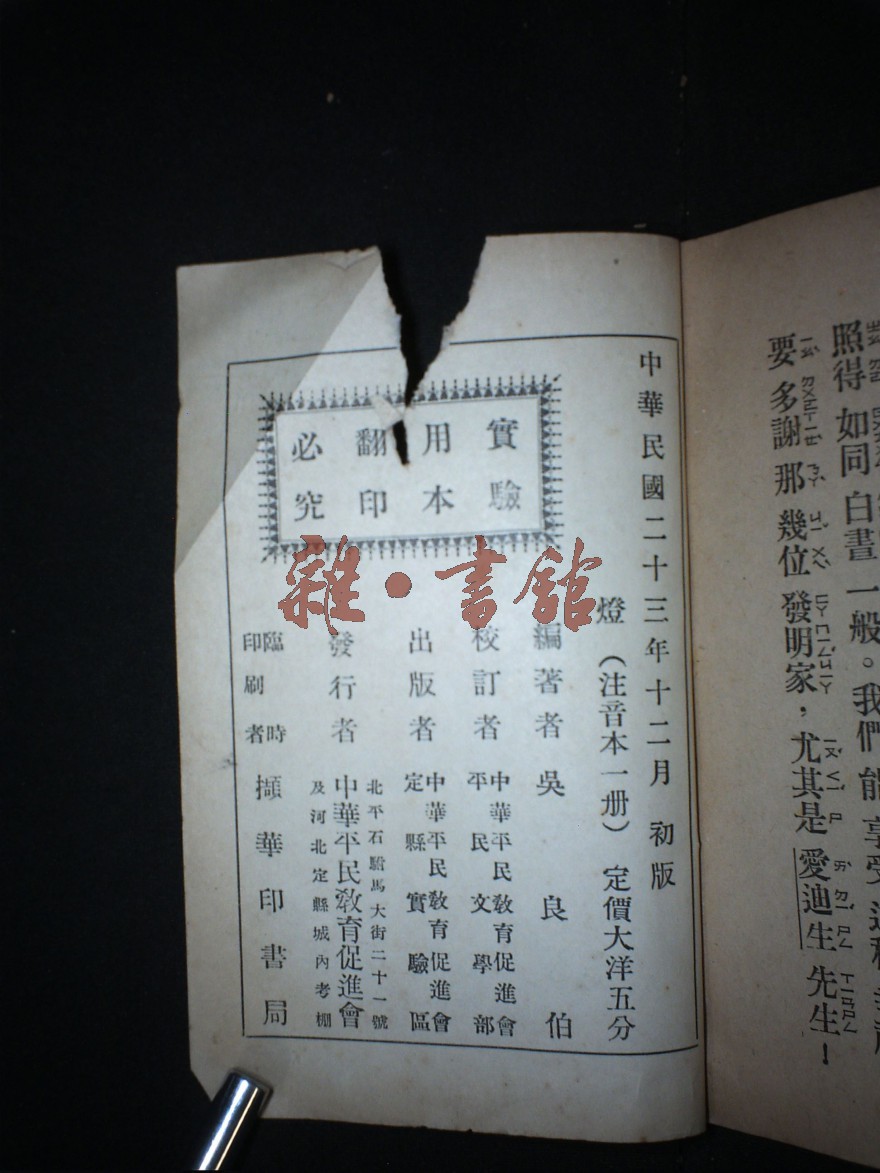 照得 如同 白晝 一般。我們 能 享受
要 多謝 那 幾位 發明家，尤其是 愛迪生 先生！
中華民國二十三年十二月 初版
燈（注音本一册） 定價大洋五分
編著者 吳良伯
校訂者 中華平民教育促進會
平民文學部
出版者 中華平民教育促進會
定縣實驗區
發行者 北平石駙馬大街二十一號
中華平民敎育促進會
及河北定縣城內考棚
臨時
印刷者 擷華印書局
實驗
用本
翻印
必究
雜·書館